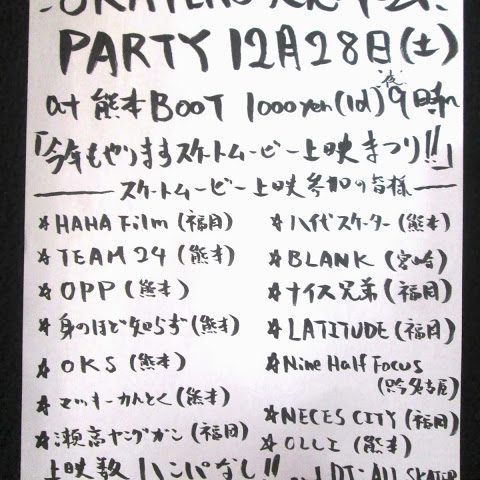 SKATERS
PARTY 12月28日(土)
at 熊本BOOT 1000yen(1d) 夜9時〜
「今年もやりますスケートムービー上映まつり!!」
スケートムービー上映参加の皆様
☆HAHA Film (福岡)
☆TEAM 24 (熊本)
☆OPP (熊本)
☆身のほど知らず(熊本)
☆OKS (熊本)
☆マッキーかんとく(熊本)
☆瀬高ヤングガン(福岡)
☆八代スケーター(熊本)
☆BLANK (宮崎)
☆ナイス兄弟(福岡)
☆LATITUDE(福岡)
☆Nine Half Focus
名古屋)
☆NECES CITY(福岡)
☆OLLI (熊本)
上映数 ハンパなし!!
DJ: ALL SKATER